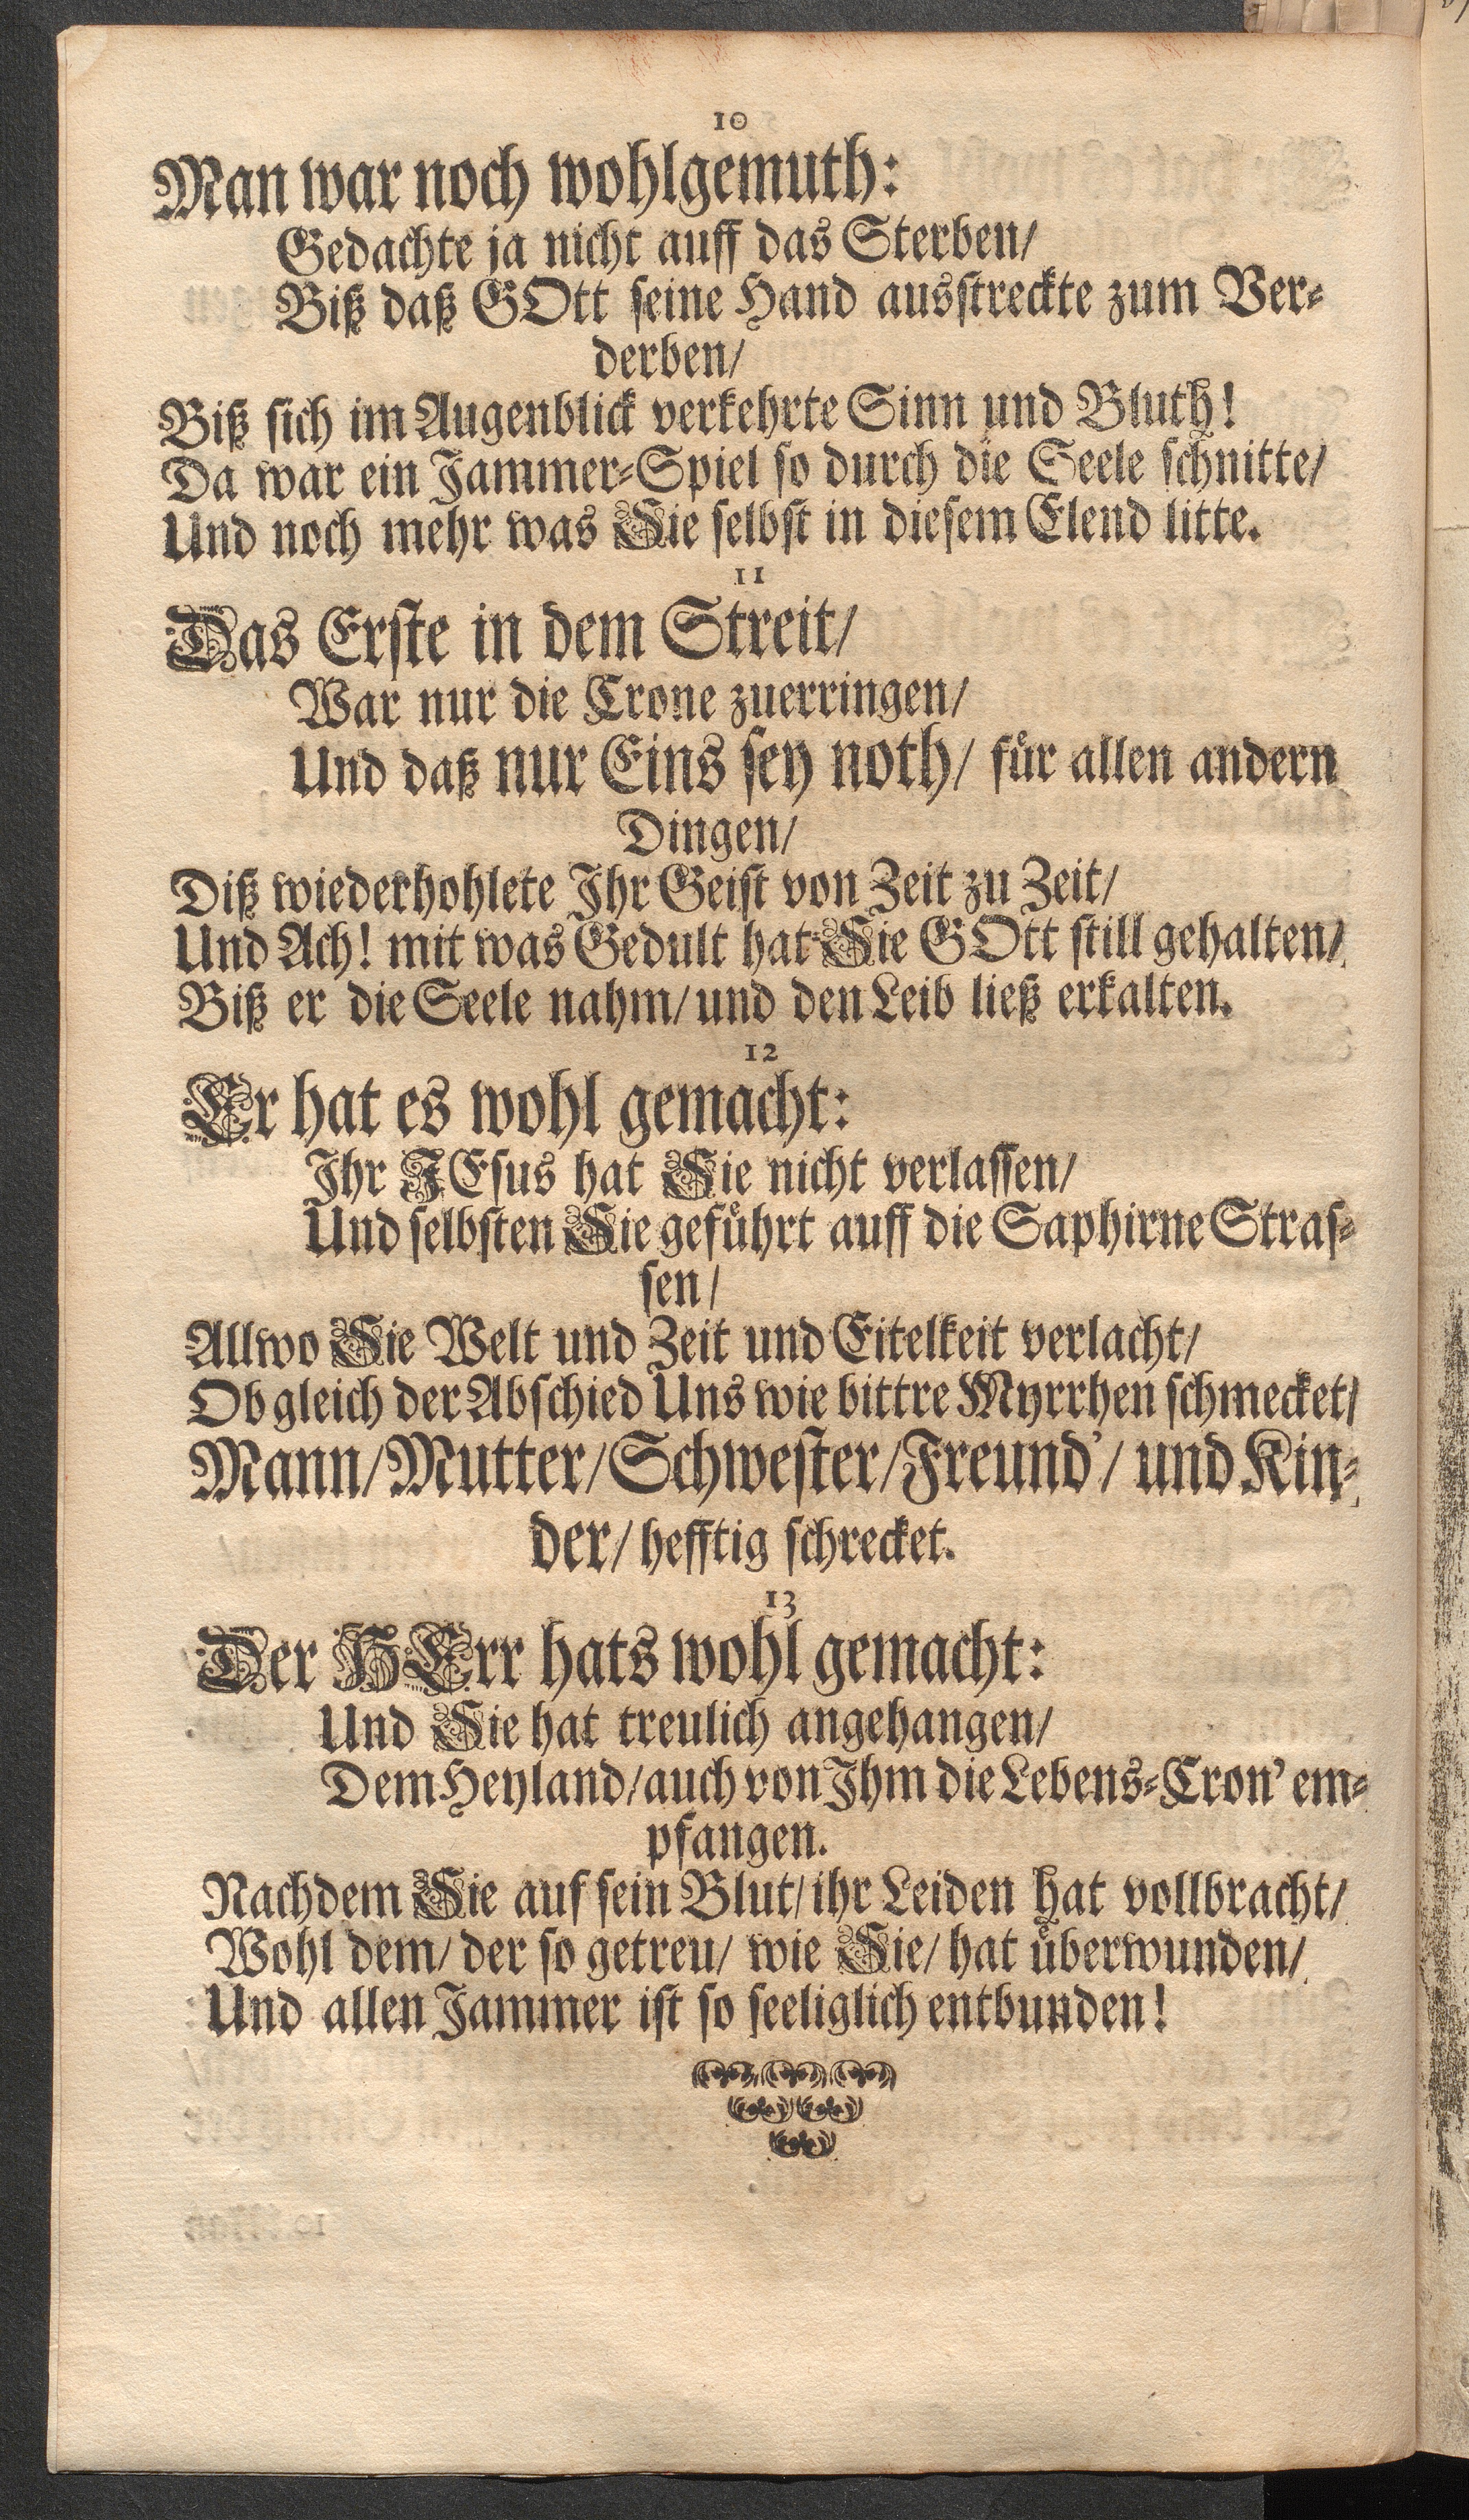 10
Man war noch wohlgemuth:
Gedachte ja nicht auff das Sterben/
Biß daß GOtt seine Hand ausstreckte zum Ver-
derben/
Biß sich im Augenblick verkehrte Sinn und Bluth!
Da war ein Jammer-Spiel so durch die Seele schnitte/
Und noch mehr was Sie selbst in diesem Elend litte.
11
Das Erste in dem Streit/
War nur die Crone zuerringen/
Und daß nur Eins sey noth/ für allen andern
Dingen/
Diß wiederhohlete Ihr Geist von Zeit zu Zeit/
Und Ach! mit was Gedult hat Sie GOtt still gehalten/
Biß er die Seele nahm/ und den Leib ließ erkalten.
12
Er hat es wohl gemacht:
Ihr JEsus hat Sie nicht verlassen/
Und selbsten Sie geführt auff die Saphirne Stras-
sen/
Allwo Sie Welt und Zeit und Eitelkeit verlacht/
Ob gleich der Abschied Uns wie bittre Myrrhen schmecket/
Mann/ Mutter/ Schwester/ Freund'/ und Kin-
der/ hefftig schrecket.
13
Der HErr hats wohl gemacht:
Und Sie hat treulich angehangen/
Dem Heyland/ auch von Ihm die Lebens-Cron' em-
pfangen.
Nachdem Sie auf sein Blut/ ihr Leiden hat vollbracht/
Wohl dem/ der so getreu/ wie Sie/ hat überwunden/
Und allen Jammer ist so seeliglich entbunden!